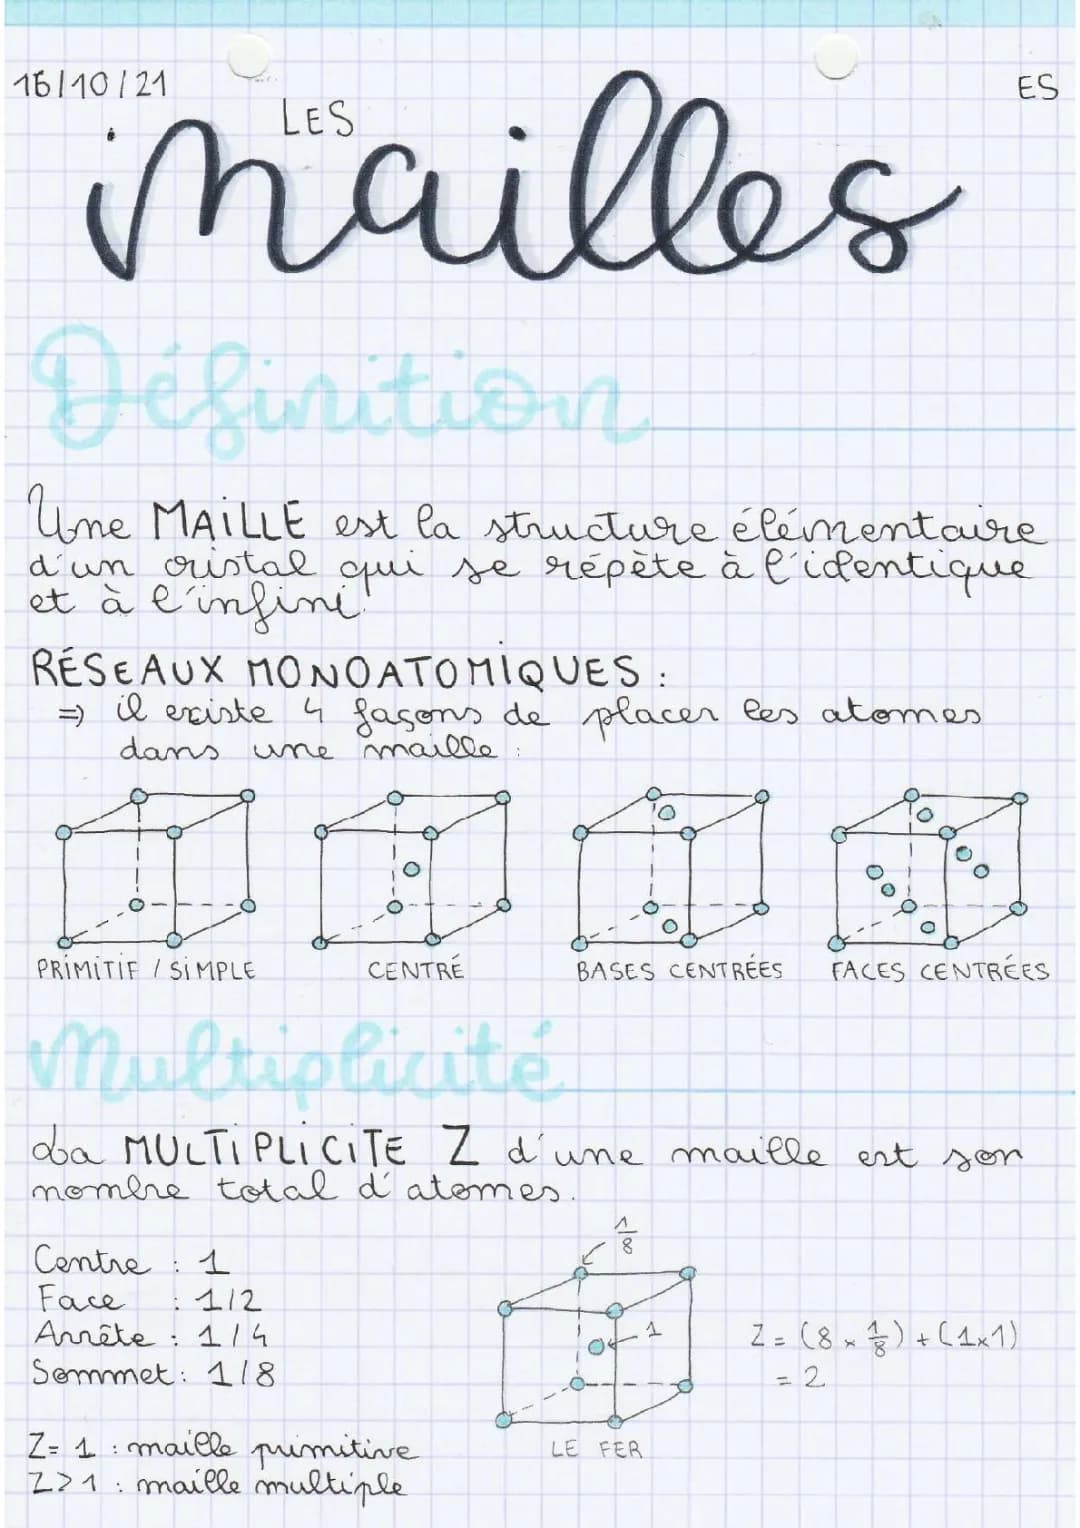 16/10/21
ES
LES
mailles
Définition
Une MAILLE est la structure élémentaire
d'un cristal qui se répète à l'identique
et à l'infini.
RÉSEAUX MONOATOMIQUES :
⇒ il existe 4 façons de placer les atomes
dans une maille :
PRIMITIF / SIMPLE
CENTRÉ
BASES CENTRÉES
FACES CENTRÉES
Multiplicité
La MULTIPLICITE Z d'une maille est son
nombre total d'atomes.
Centre : 1
Face : 1/2
Arrête : 1/4
Sommet : 1/8
1/8
1
Z = (8 × 1/8) + (1×1)
= 2
LE FER
Z = 1 : maille primitive
Z > 1 : maille multiple